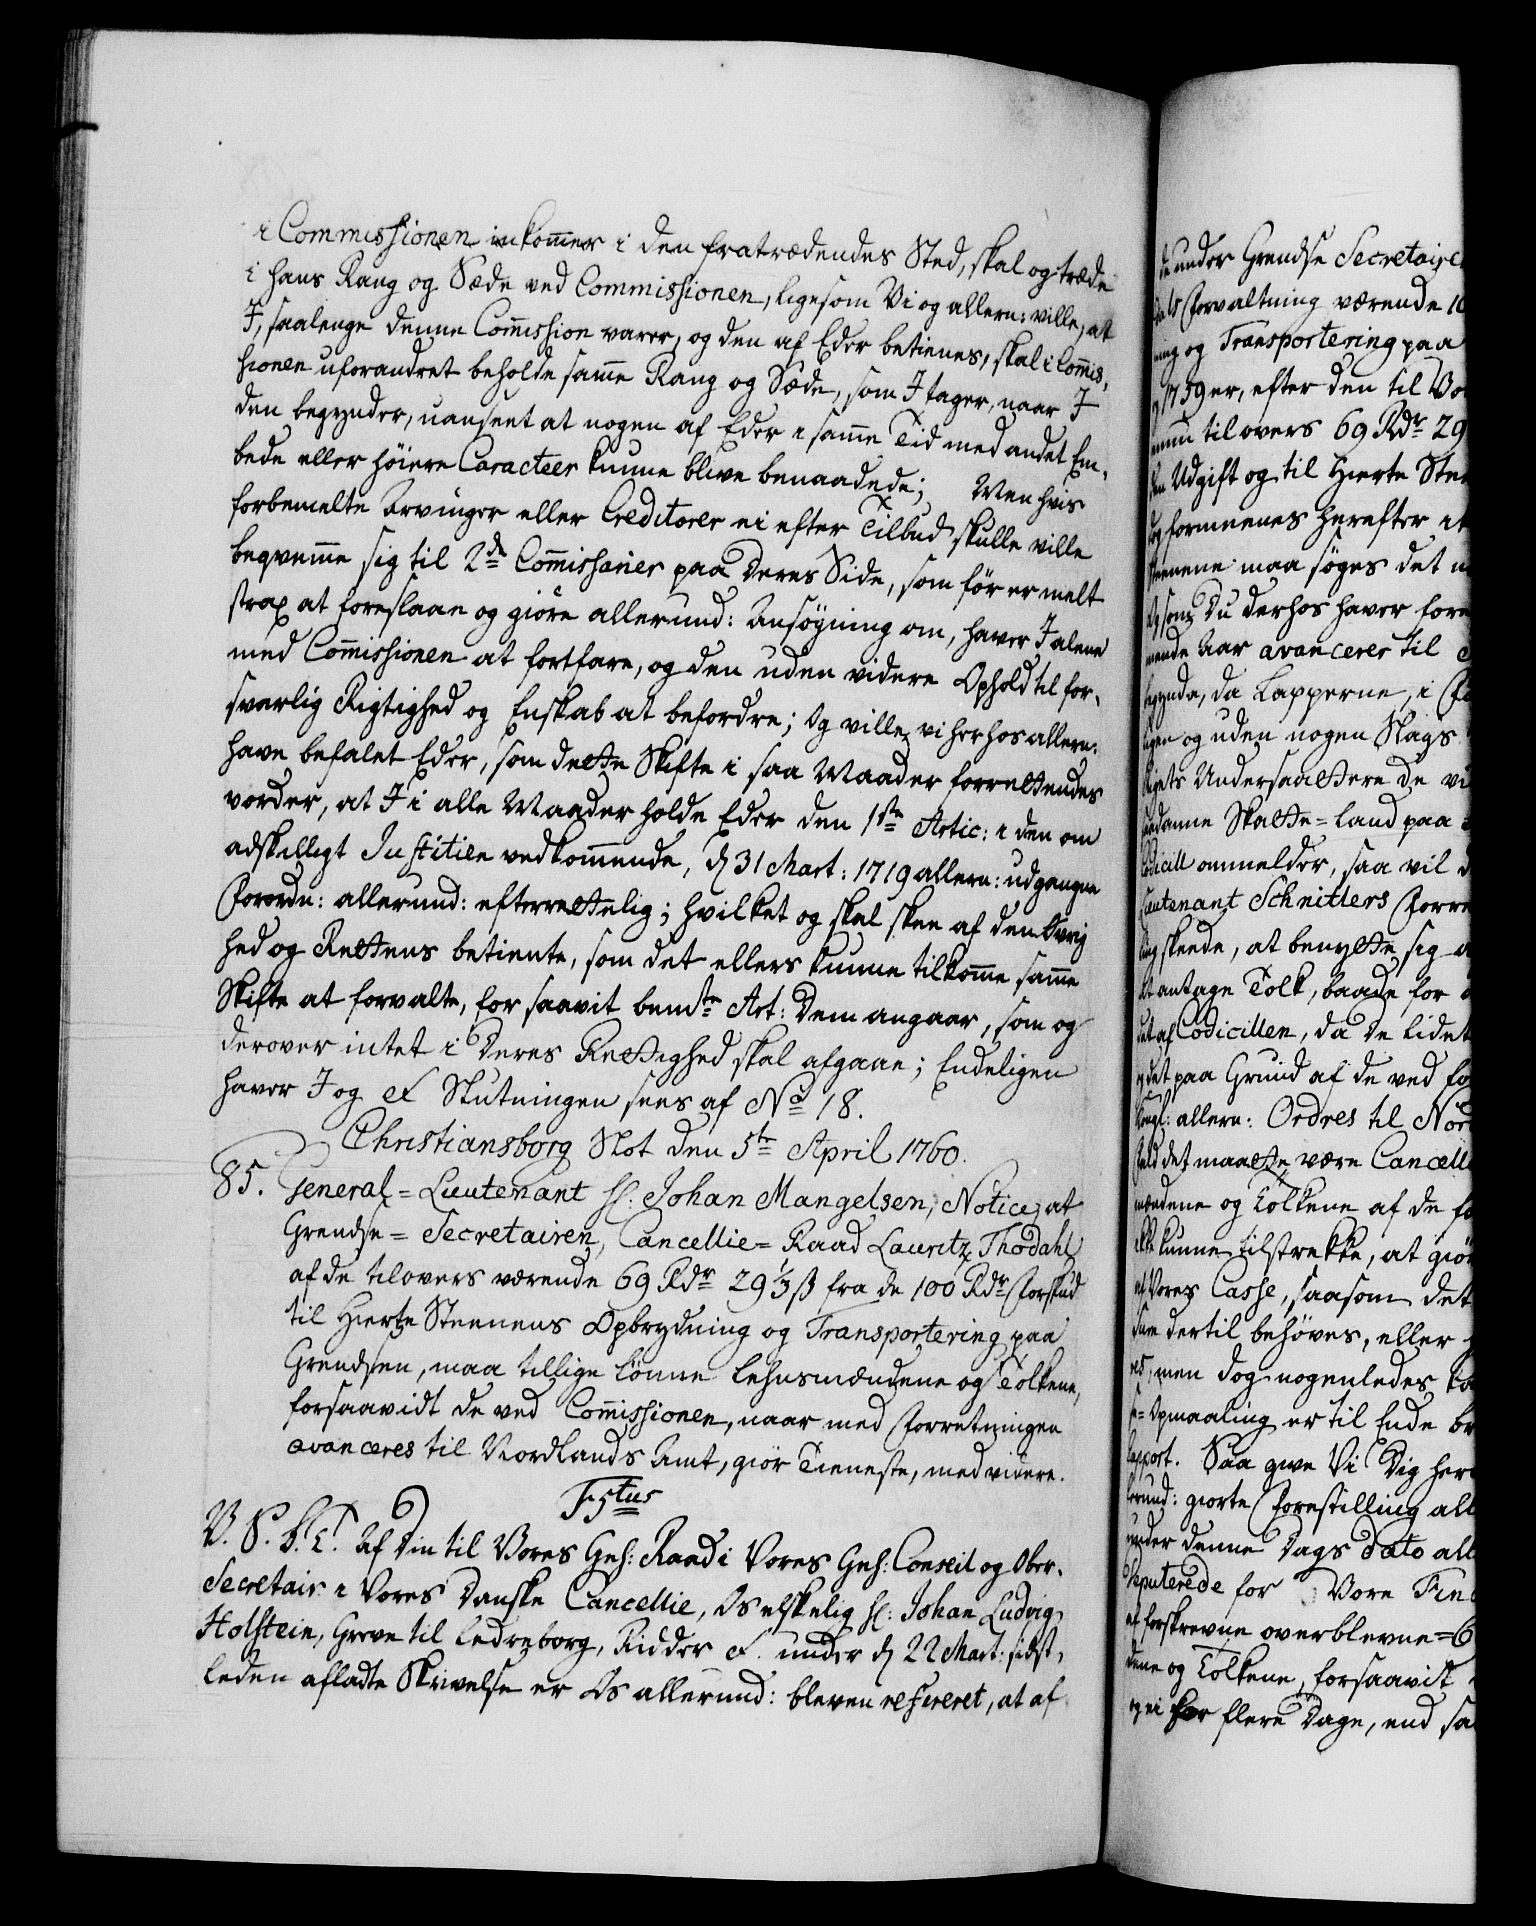 i Commissionen inkom̄er i den fratrædendes Sted, skal og træde
i hans Rang og Sæde ved Commissionen, ligesom Vi og allern: ville, at
I, saalenge denne Com̄ission varer, og den af Eder betienes, skal i Com̄is-
sionen uforandret beholde sam̄e Rang og Sæde, som I tager, naar I
den begynder, uanseet at nogen af Eder i sam̄e Tid med andet Em-
bede eller höiere Caracteer kunne blive benaadede; Men hvis
forbemelte Arvinger eller Creditorer ei efter Tilbud skulle ville
beqvem̄e sig til 2de Com̄issarier paa Deres Side, som för er melt
strax at foreslaae og giöre allerund: Ansögning om, haver I alene
med Com̄issionen at fortfare, og den uden videre Ophold til for-
svarlig Rigtighed og Enskab at befordre; Og ville vi herhos allern:
have befalet Eder, som dette Skifte i saa Maader forrettendes
vorder, at I i alle Maader holde Eder den 1ste Artic: i den om
adskilligt Justitien vedkom̄ende, d 31 Mart: 1719 allern: udgangne
Forordn: allerund: efterrettelig; hvilket og skal skee af den Övrig
hed og Rettens betiente, som det ellers kunne tilkom̄e sam̄e
Skifte at forvalte, for saavit bemte Art: Dem angaar, som og
derover intet i Deres Rettighed skal afgaae; Endeligen
haver I og &c Slutningen sees af No 18.
Christiansborg Slot den 5te April 1760.
85. General = Lieutenant Hr: Johan Mangelsen, Notice, at
Grendse = Secretairen, Cancellie = Raad Lauritz Thodahl
af de tilovers værende 69 Rdr 29 1/3 ß fra de 100 Rdr Forskud
til Hierte Steenens Opbrydning og Transportering paa
Grendsen, maa tillige lönne Lehnsmændene og Tolkene,
forsaavidt de ved Com̄issionen, naar med Forretningen
avanceres til Nordlands Amt, giör Tieneste, med videre.
F5tus
V. S. G. T. Af Din til Vores Geh: Raad i Vores Geh: Conseil og Ober-
Secretair i Vores Danske Cancellie, Os elskelig Hr: Johan Ludvig
Holstein, Greve til Ledreborg, Ridder &c. under d 22 Mart: sidst-
leden afladte Skrivelse er Os allerund: bleven refereret, at af
de under Grendse Secretaire
Forvaltning værende 10
og Transportering paa
1759 er, efter den til Vo
tilovers 69 Rdr 29
Udgift og til Hierte Ste
formeenes herefter
maa söges det
som Du derhos haver fore
Aar avancerer til
da Lapperne, i
og uden nogen Slags
Undersaattere de vi
Skatte = Land paa
ommelder, saa vil
Schnitlers Forre
skeede, at benytte sig
antage Tolk, baade for
af Codicillen, da De lidet
det paa Grund af de ved
allern: Ordres til Nord
det maatte være Cancelli
og Tolkene af de
kunne tilstrekke, at giör
Vores Casse, saasom det
dertil behöves, eller
men dog nogenledes
Opmaaling er til Ende br
Saa give Vi Dig her
giorte Forestilling all
under denne Dags dato all
Deputerede for Vore Fin
forskrevne overblevne = 6
og Tolkene, forsaavit
og ei for flere Dage, end sa